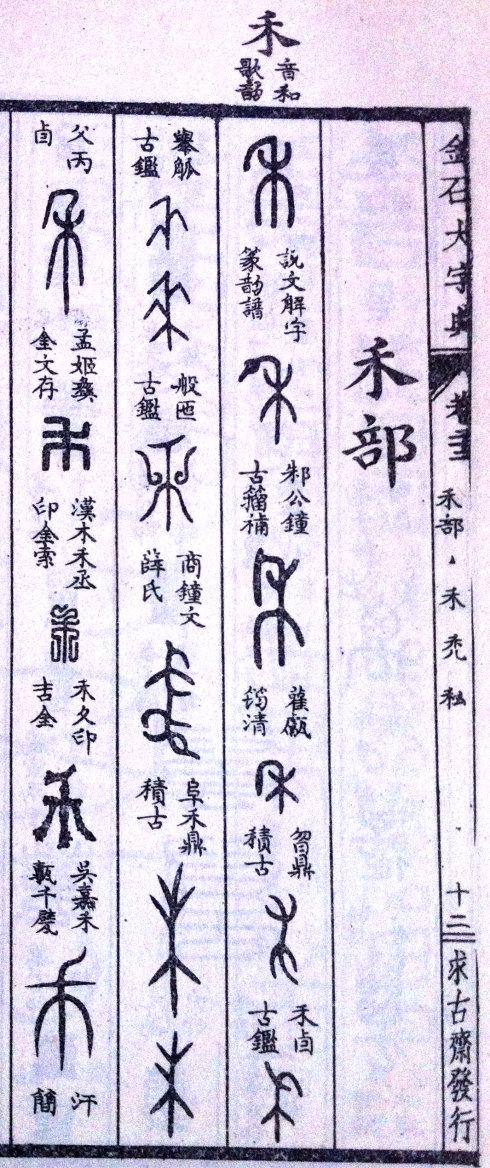 禾
音和
歌韵
金石大字典
禾部 禾 禿 私
十二
求古齋發行
禾部
說文解字
篆韵譜
邾公鐘
古籀補
筠清
曶鼎
積古
禾卣
古鑑
舉觚
古鑑
般匜
古鑑
商鐘文
薛氏
阜禾鼎
積古
父丙
卣
孟姬
金文存
漢木禾丞
印金索
禾久印
吉金
吳嘉禾
甎千甓
汗
簡